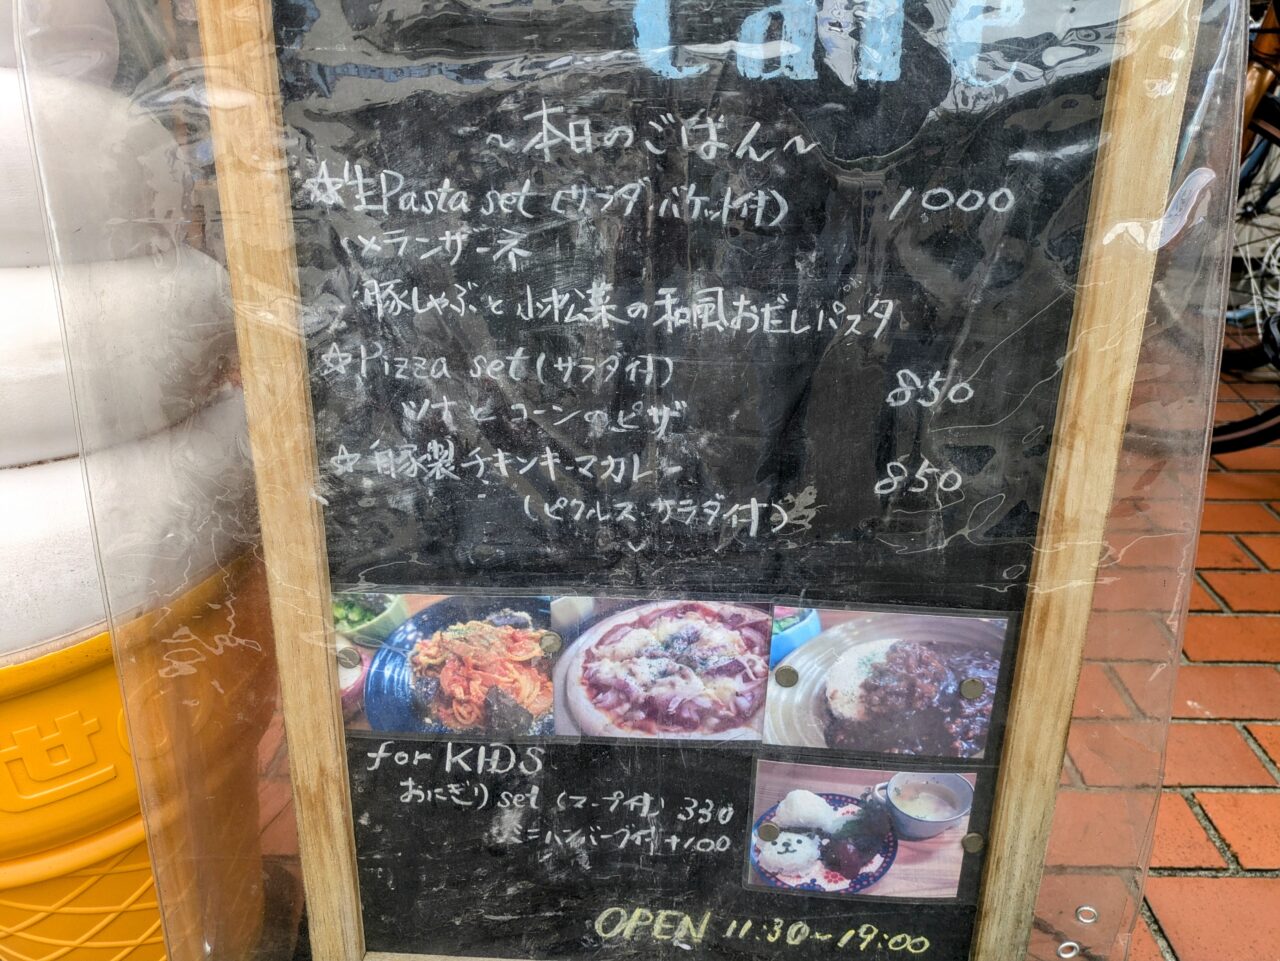 Cafe
～本日のごはん～
☆生Pasta set (サラダ・バケット付) 1000
×ランザーネ
豚しゃぶと小松菜の和風おだしパスタ
☆Pizza set (サラダ付) 850
ツナとコーンのピザ
☆自家製チキンキーマカレー 850
(ピクルス サラダ付)
for KIDS
おにぎり set (スープ付) 330
ミニハンバーグ付 +100
OPEN 11:30~19:00
せ